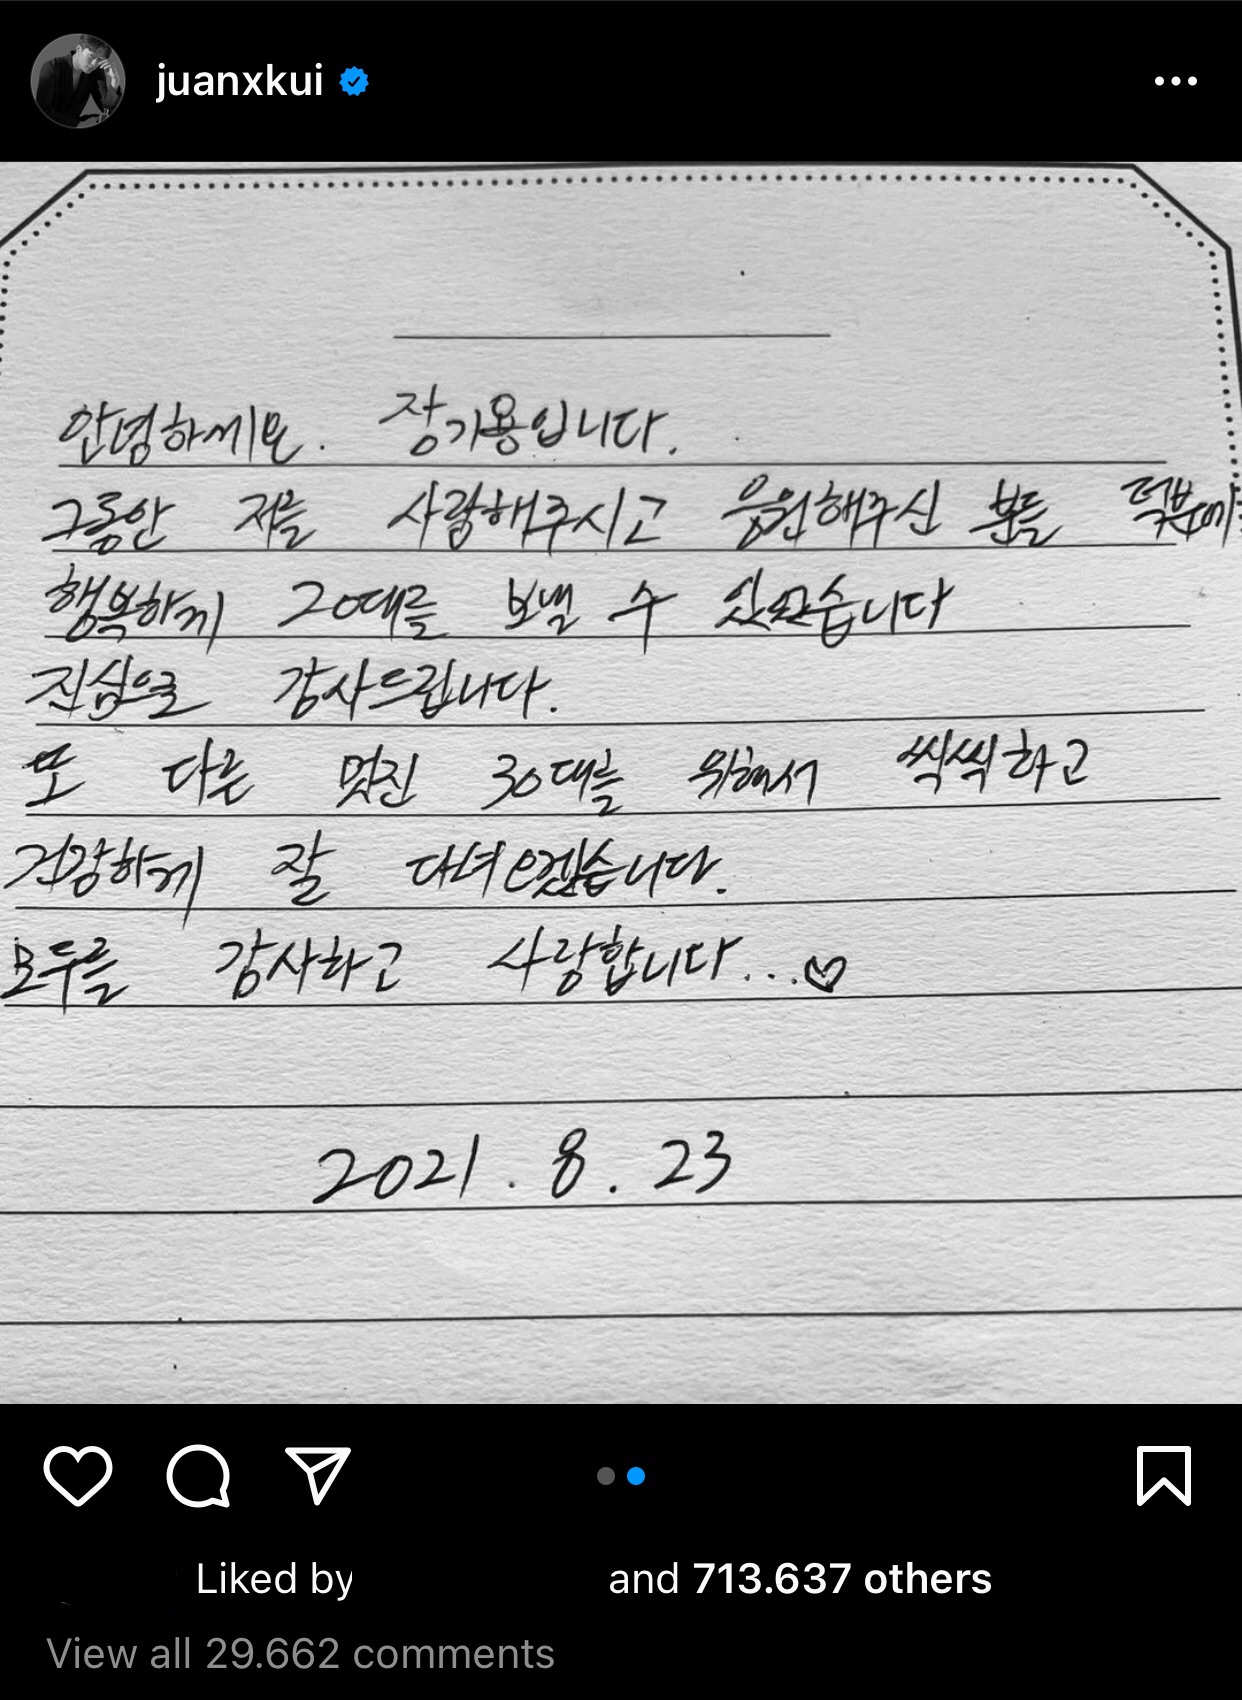 juanxkui
안녕하세요. 장기용입니다.
그동안 저를 사랑해주시고 응원해주신 분들 덕분에
행복하게 20대를 보낼 수 있었습니다
진심으로 감사드립니다.
또 다른 멋진 30대를 위해서 씩씩하고
건강하게 잘 다녀오겠습니다.
모두들 감사하고 사랑합니다...♡
2021.8.23
Liked by and 713.637 others
View all 29.662 comments